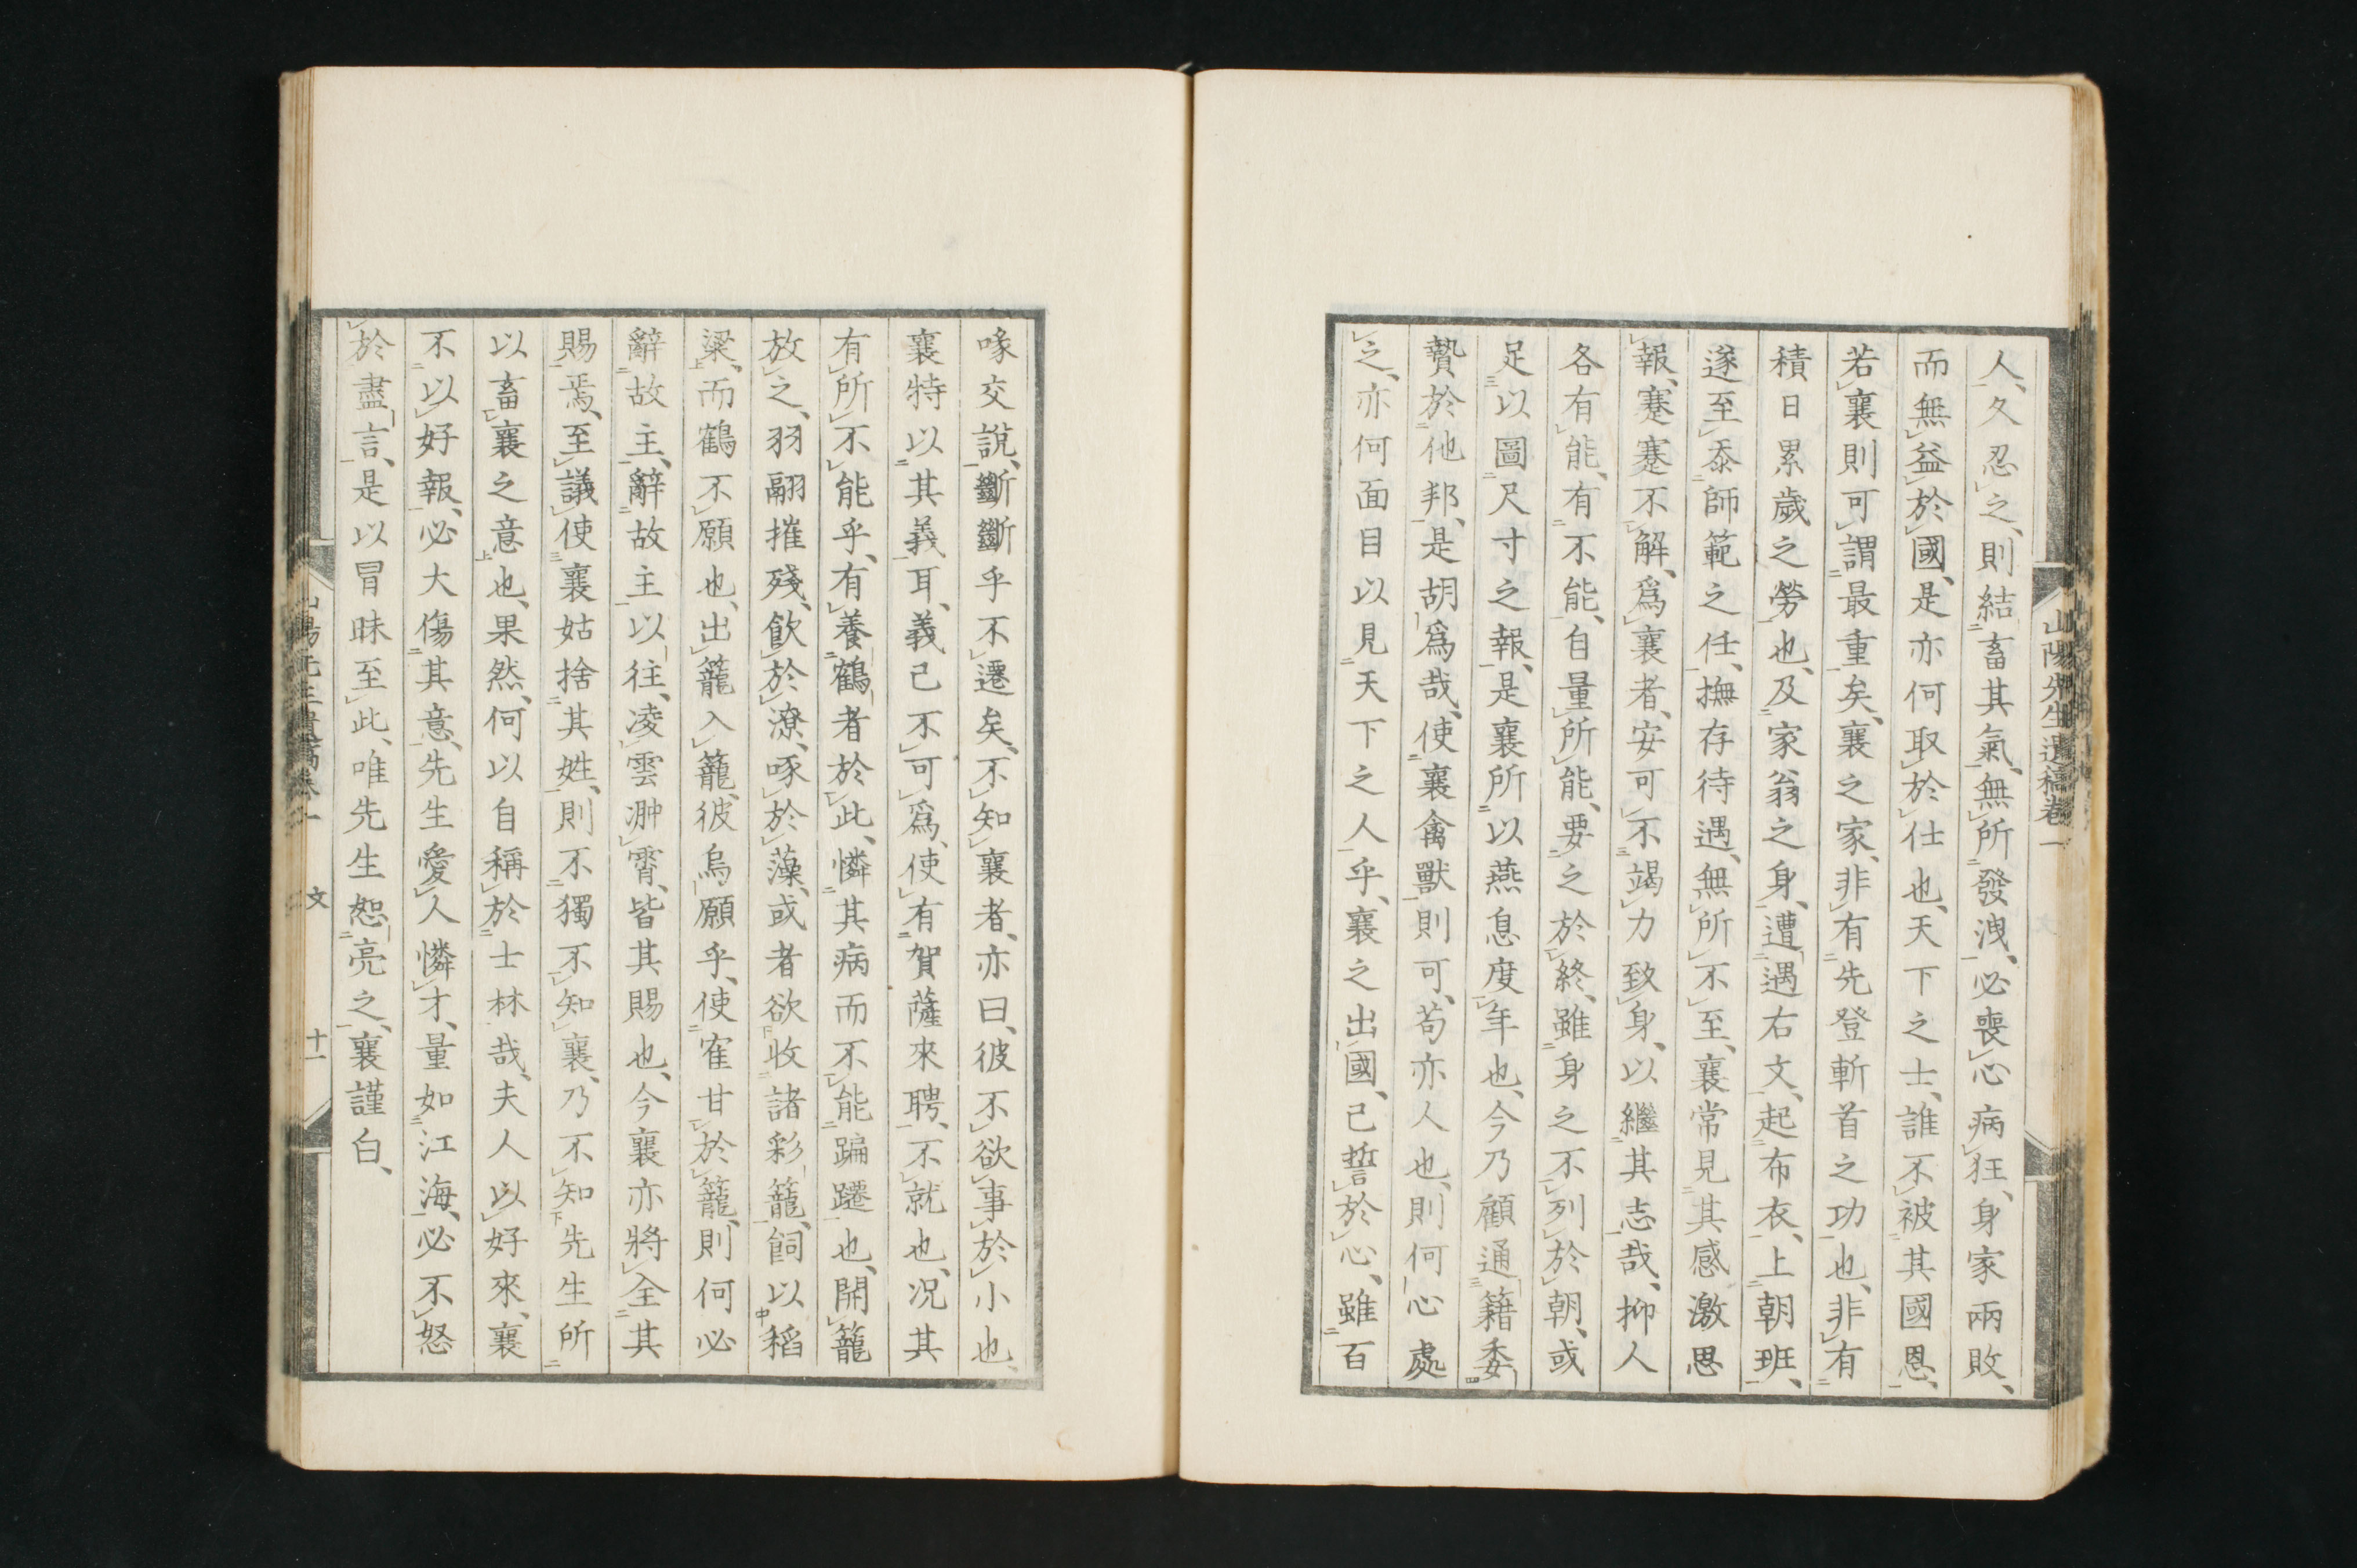 山陽先生遺稿卷一
人、久忍之、則結畜其氣、無所發洩、必喪心病狂、身家兩敗、
而無益於國、是亦何取於仕也、天下之士、誰不被其國恩、
若襄則可謂最重矣、襄之家、非有先登斬首之功也、非有
積日累歲之勞也、及家翁之身、遭遇右文、起布衣、上朝班、
遂至忝師範之任、撫存待遇、無所不至、襄常見其感激思
報、蹇蹇不解、爲襄者、安可不竭力致身、以繼其志哉、抑人
各有能、有不能、自量所能、要之於終、雖身之不列於朝、或
足以圖尺寸之報、是襄所以燕息度年也、今乃顧通籍委
贄於他邦、是胡爲哉、使襄禽獸則可、苟亦人也、則何心處
之、亦何面目以見天下之人乎、襄之出國、已誓於心、雖百
喙交說、斷斷乎不遷矣、不知襄者、亦曰、彼不欲事於小也、
襄特以其義耳、義已不可爲、使有賀薩來聘、不就也、況其
有所不能乎、有養鶴者於此、憐其病而不能蹁躚也、開籠
放之、羽翮摧殘、飮於潦、啄於藻、或者欲收諸彩籠、飼以稻
梁、而鶴不願也、出籠入籠、彼烏願乎、使寉甘於籠、則何必
辭故主、辭故主以往、凌雲翀霄、皆其賜也、今襄亦將全其
賜焉、至議使襄姑捨其姓、則不獨不知襄、乃不知先生所
以畜襄之意也、果然、何以自稱於士林哉、夫人以好來、襄
不以好報、必大傷其意、先生愛人憐才、量如江海、必不怒
於盡言、是以冒昧至此、唯先生恕亮之、襄謹白、
文
十一